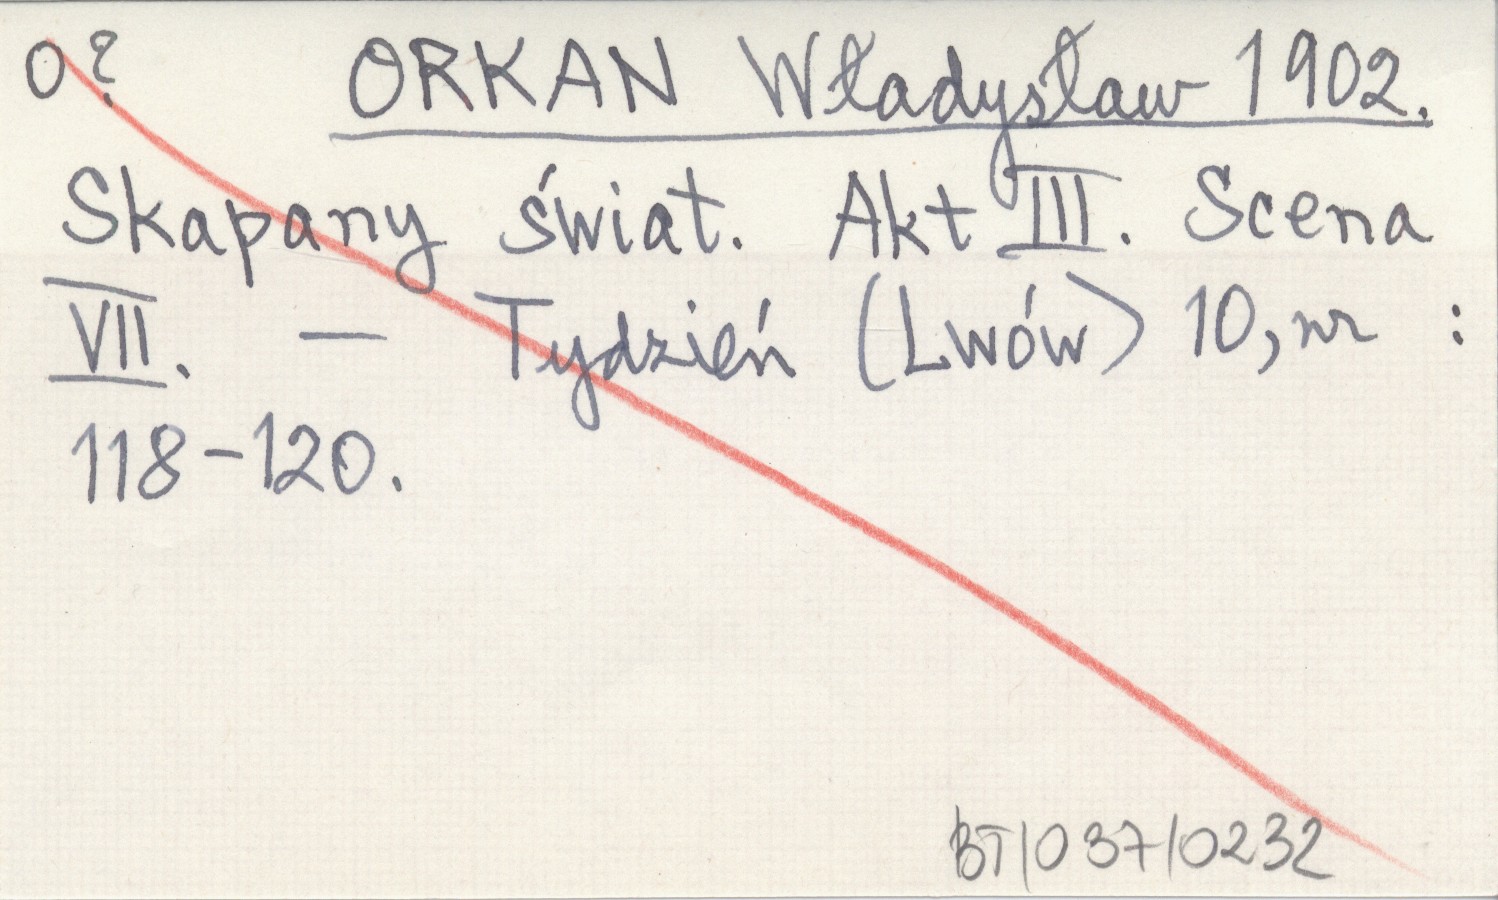 O?
ORKAN Władysław 1902.
Skąpany świat. Akt III. Scena
VII. — Tydzień (Lwów) 10, nr :
118-120.
BT/037/0232